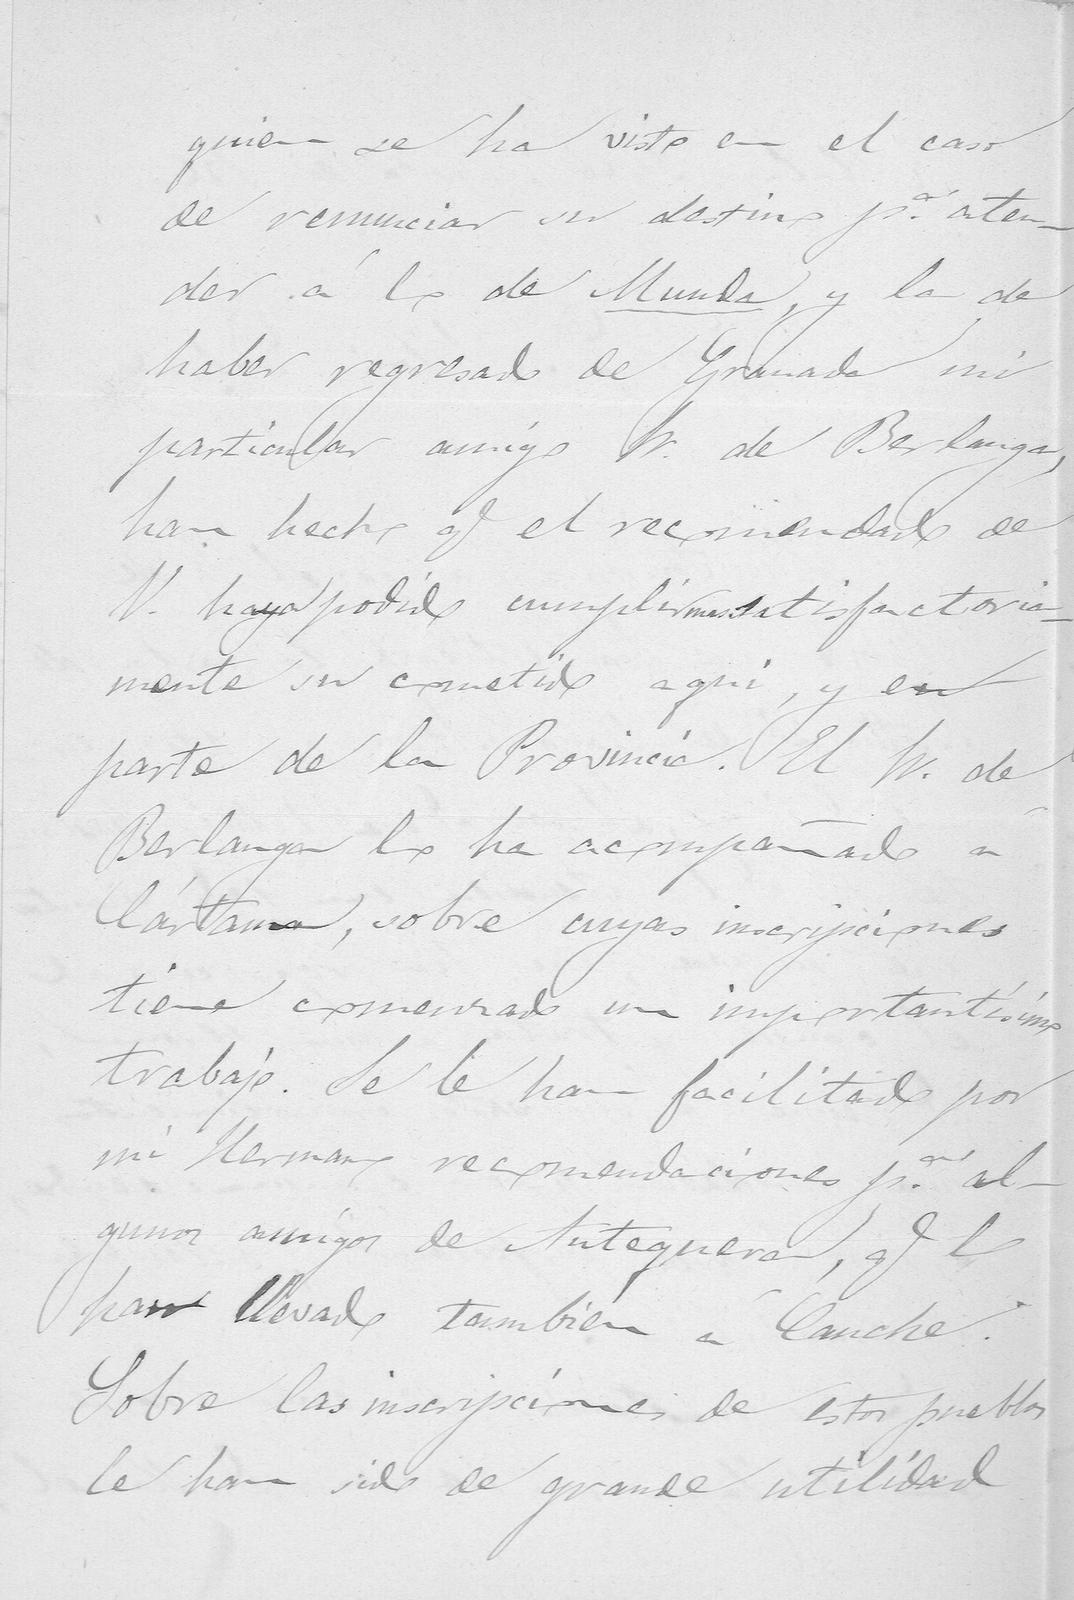 quien se ha visto en el caso
de renunciar su destino p.ª aten-
der á lo de Munda, y la de
haber regresado de Granada mi
particular amigo de Berlanga,
han hecho q̃ el recomendado de
V. haya podido cumplir mas satisfactoria-
mente su cometido aqui, y en
parte de la Provincia. El de
Berlanga lo ha acompañado á
Cártama, sobre cuyas inscripciones
tiene comenzado un importantísimo
trabajo. Se le han facilitado por
mi Hermano recomendaciones p.ª al-
gunos amigos de Antequera, q̃ lo
han llevado también á Cauche.
Sobre las inscripciones de estos pueblos
le han sido de grande utilidad